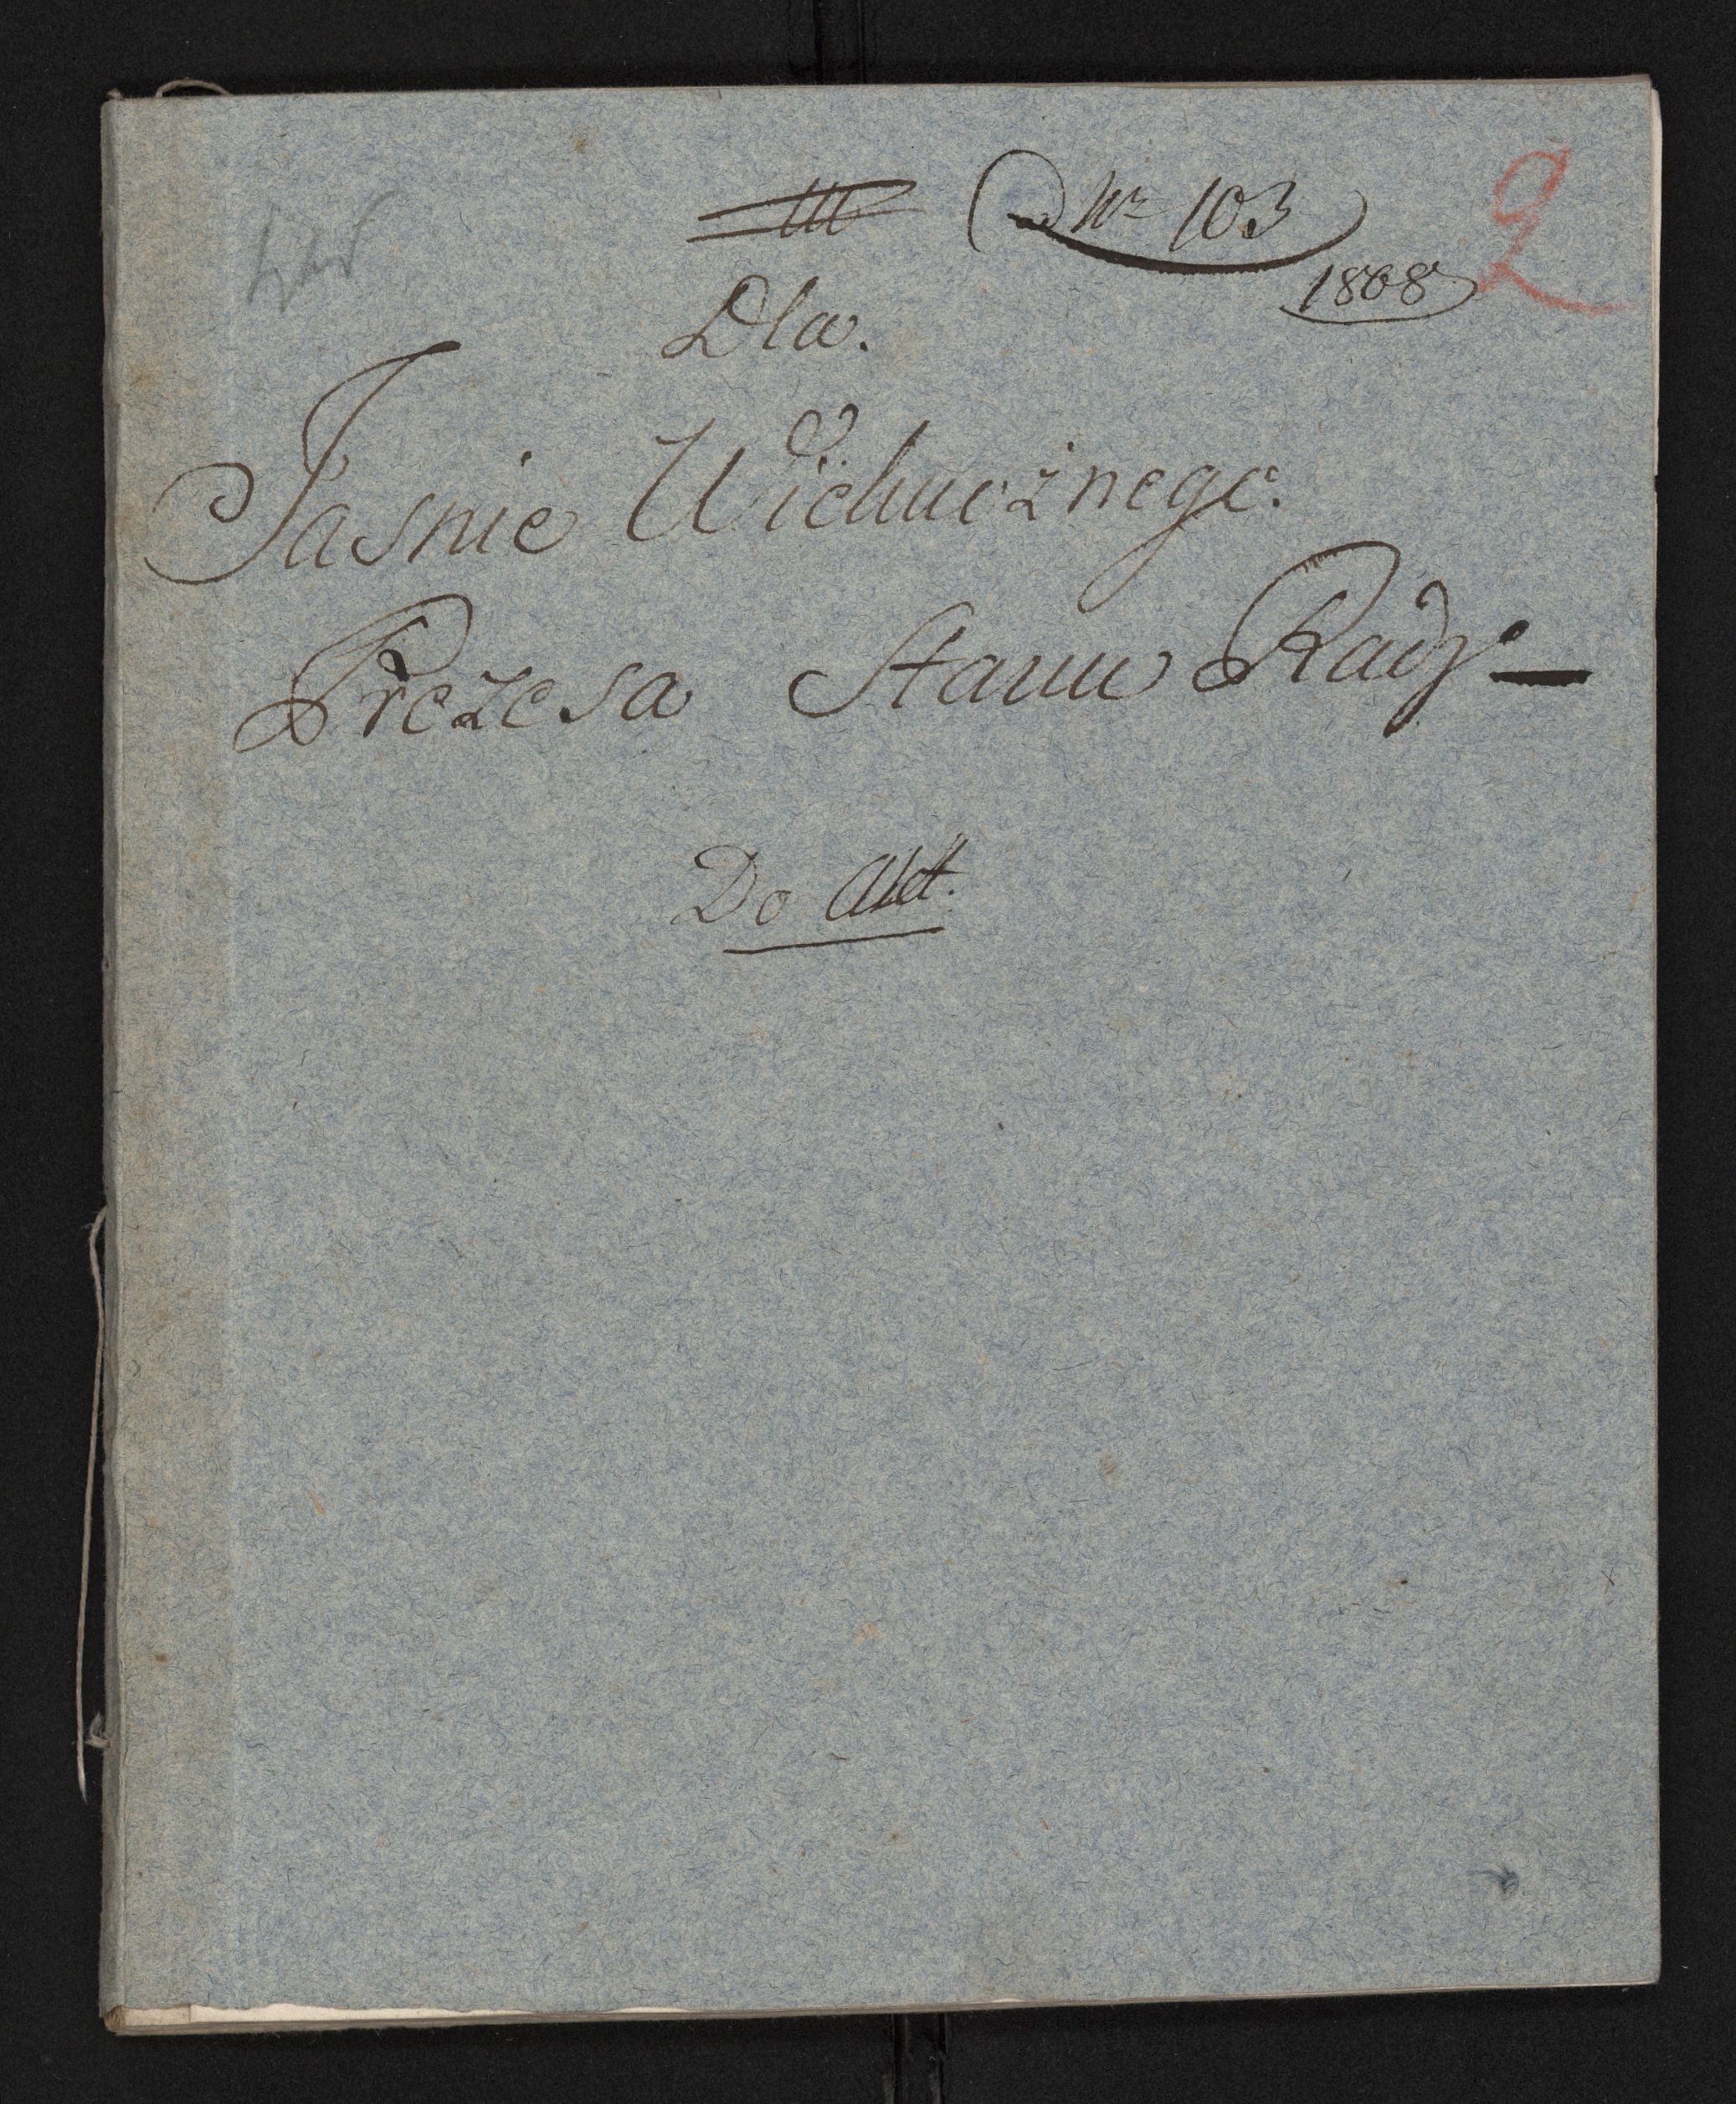 ad Nr 103
1808
2
Dla.
Jasnie Wielmożnego.
Prezesa Stanu Rady —
Do Akt.